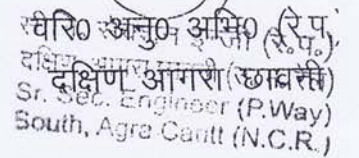 वरि0 अनु0 अभि0 (रे.प.)
दक्षिण आगरा (छावनी)
Sr. Sec. Engineer (P.Way)
South, Agra Cantt (N.C.R.)